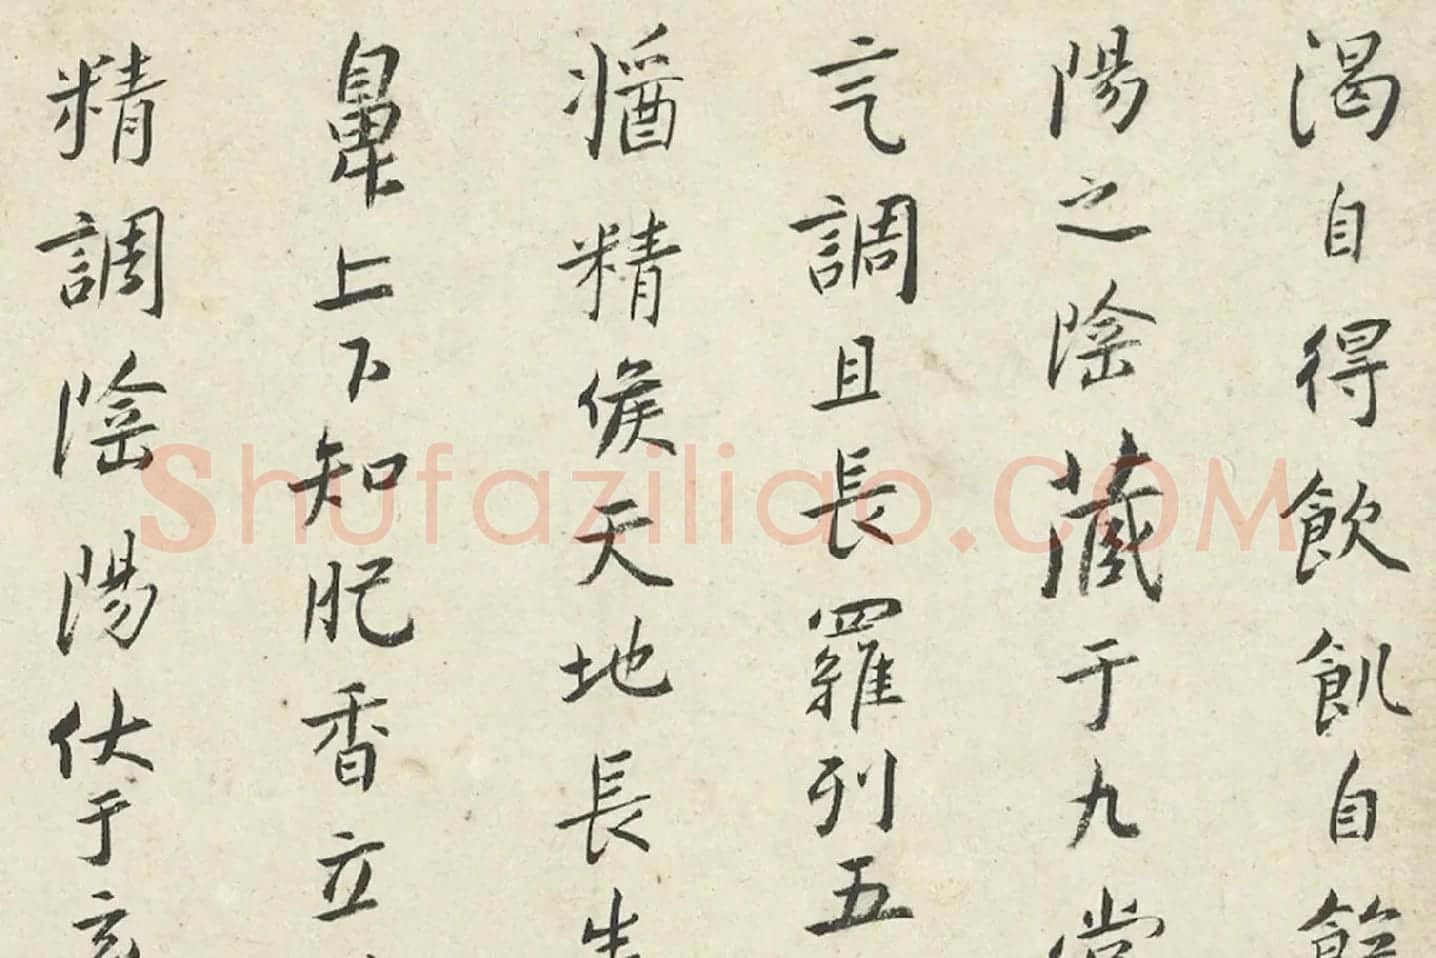 渴自得飲飢自飽
陽之陰藏于九常
言調且長羅列五
猶精侯天地長生
鼻上下知肥香立
精調陰陽伏于玄
Shufaziliao.COM